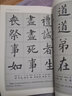 喪盡禮
祭盡誠
事死者
如事生
道
道
弟
在